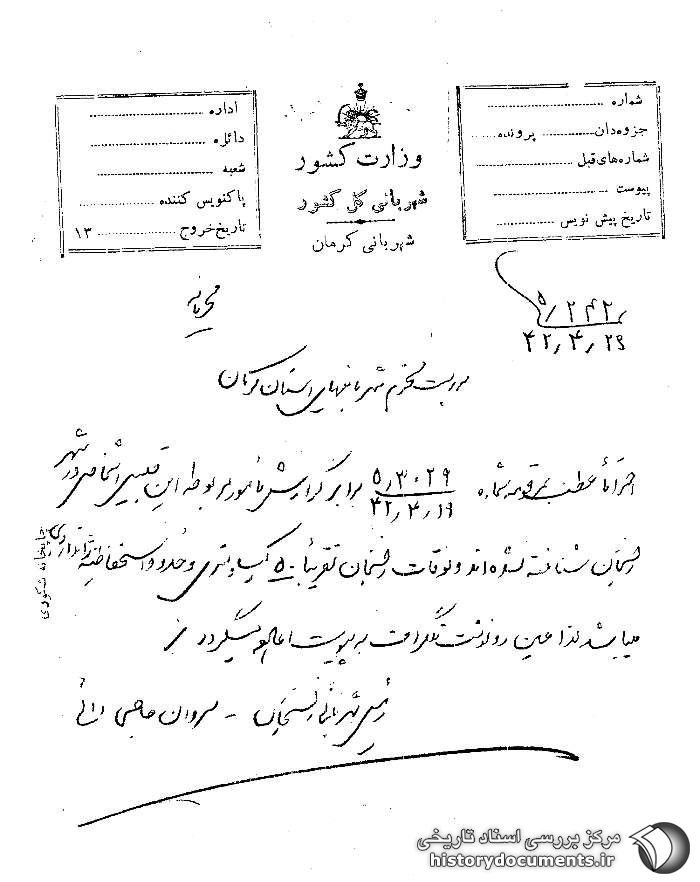 شماره
جزوه‌دان پرونده
شماره‌های قبل
پیوست
تاریخ پیش نویس
وزارت کشور
شهربانی کل کشور
شهربانی کرمان
اداره
دائره
شعبه
پاکنویس کننده
تاریخ خروج ۱۳
محرمانه
۵/۲۴۲
۴۲/۴/۲۹
مدیریت محترم شهربانیهای استان کرمان
احتراماً عطف بمرقومه شماره ۵/۳۰۲۹ ۴۲/۴/۱۹ برابر گزارش مأمور مربوطه این قبیل اشخاص در شهر
رفسنجان شناخته نشده‌اند و نوقات رفسنجان تقریباً ۵۰ کیلومتری و حدود استحفاظیه ژاندارمری
میباشد لذا عین رونوشت تلگراف به پیوست اعاده میگردد
رئیس شهربانی رفسنجان - سروان حاجی
چاپخانه شکوری
مرکز بررسی اسناد تاریخی
historydocuments.ir